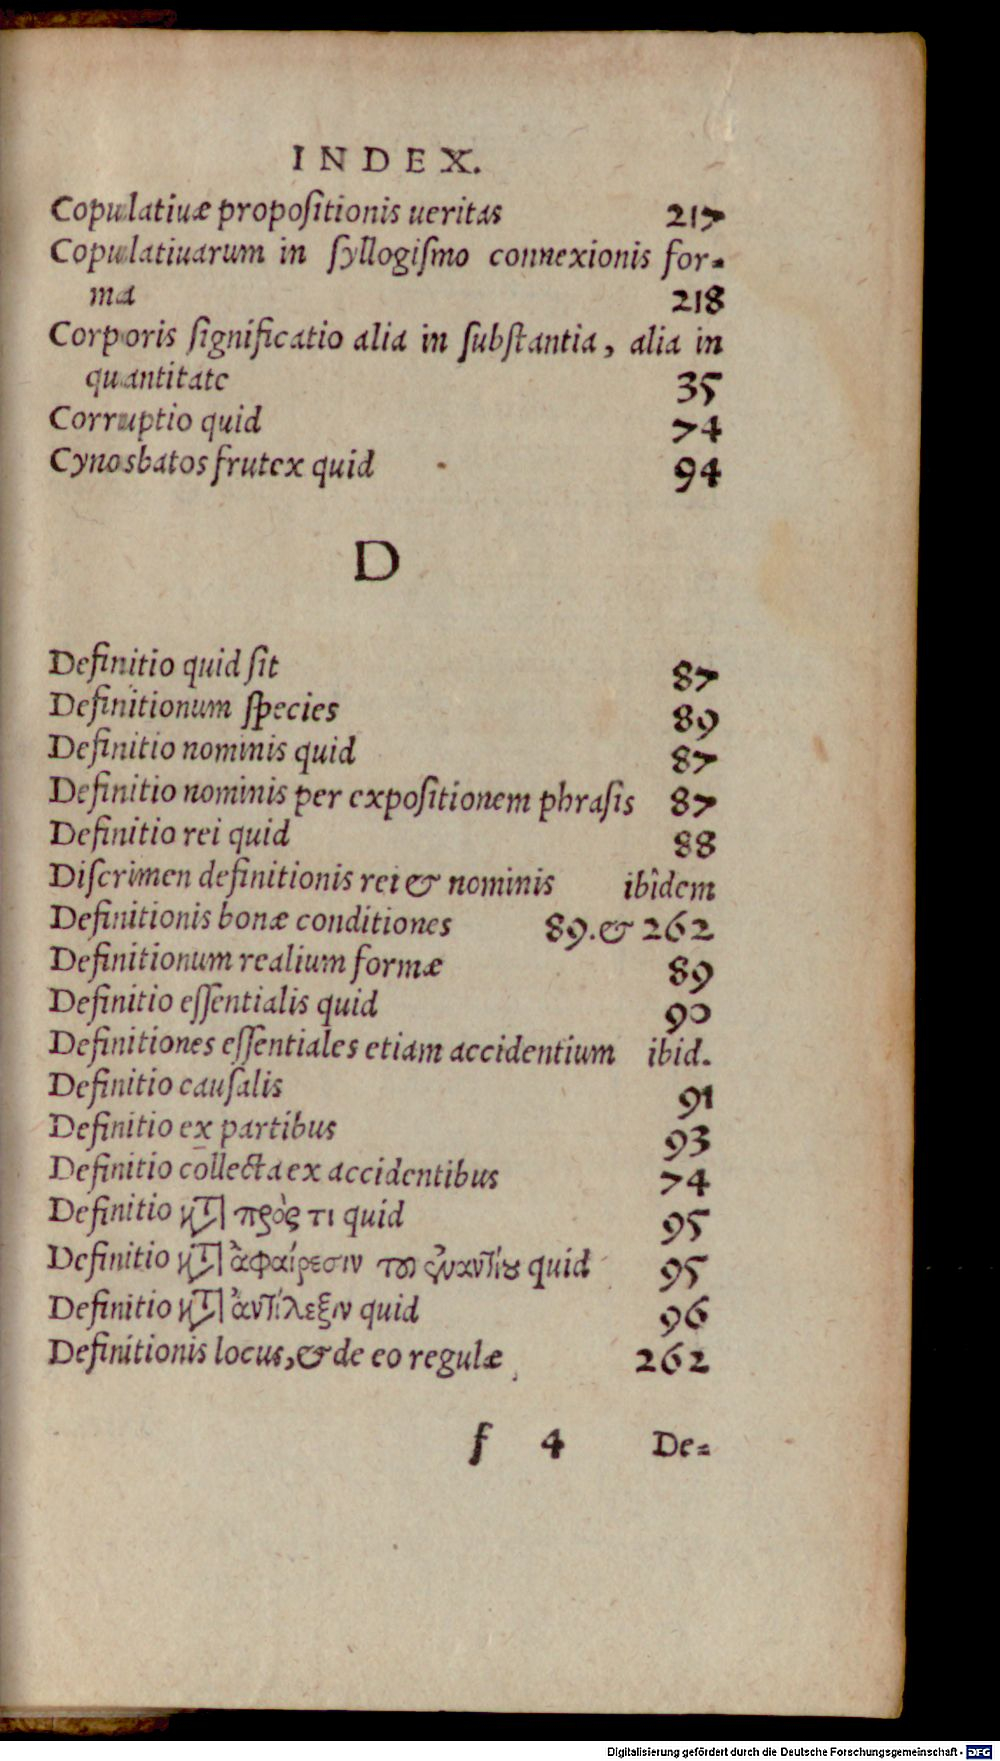 INDEX.
Copulatiuæ propoſitionis ueritas 217
Copulatiuarum in ſyllogiſmo connexionis for-
ma 218
Corporis ſignificatio alia in ſubſtantia, alia in
quantitate 35
Corruptio quid 74
Cynosbatos frutex quid 94
D
Definitio quid ſit 87
Definitionum ſpecies 89
Definitio nominis quid 87
Definitio nominis per expoſitionem phraſis 87
Definitio rei quid 88
Diſcrimen definitionis rei & nominis ibîdem
Definitionis bonæ conditiones 89. & 262
Definitionum realium formæ 89
Definitio eſſentialis quid 90
Definitiones eſſentiales etiam accidentium ibid.
Definitio cauſalis 91
Definitio ex partibus 93
Definitio collecta ex accidentibus 74
Definitio κατὰ πρὸς τι quid 95
Definitio κατὰ ἀφαίρεσιν τοῦ ἐναντίου quid 95
Definitio κατὰ ἀντίλεξιν quid 96
Definitionis locus, & de eo regulæ 262
f 4 De-
Digitalisierung gefördert durch die Deutsche Forschungsgemeinschaft - DFG